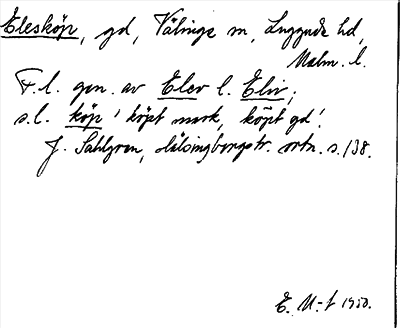 Elesköp, gd, Välinge sn, Luggude hd,
Malm. l.
F.l. gen. av Elev l. Eliv;
s.l. köp 'köpt mark, köpt gd'.
J. Sahlgren, Hälsingborgstr. ortn. s. 138.
E. 1950.